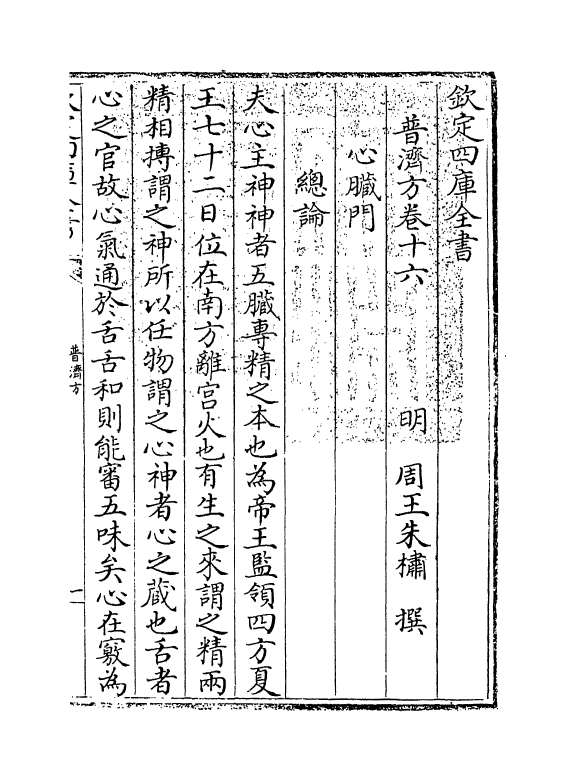 欽定四庫全書
普濟方卷十六　明　周王朱橚　撰
心臟門
總論
夫心主神神者五臟專精之本也為帝王監領四方夏
王七十二日位在南方離宫火也有生之來謂之精兩
精相搏謂之神所以任物謂之心神者心之蔵也舌者
心之官故心氣通於舌舌和則能審五味矣心在竅為
普濟方